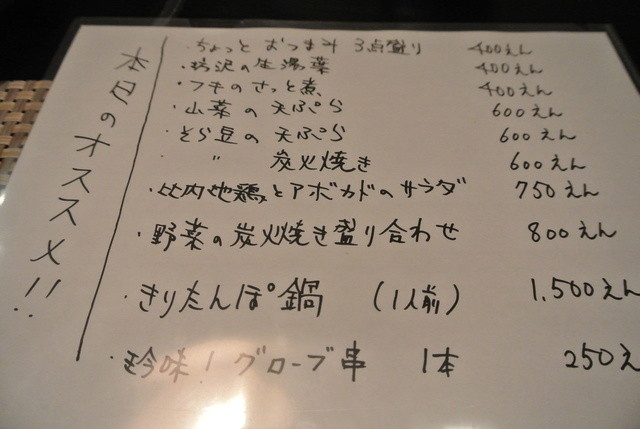 本日のオススメ!!
・ちょっと おつまみ 3点盛り 400えん
・湯沢の生湯葉 400えん
・フキのさっと煮 400えん
・山菜の天ぷら 600えん
・そら豆の天ぷら 600えん
・ 〃 炭火焼き 600えん
・比内地鶏とアボカドのサラダ 750えん
・野菜の炭火焼き盛り合わせ 800えん
・きりたんぽ鍋 (1人前) 1,500えん
・珍味! グローブ串 1本 250え